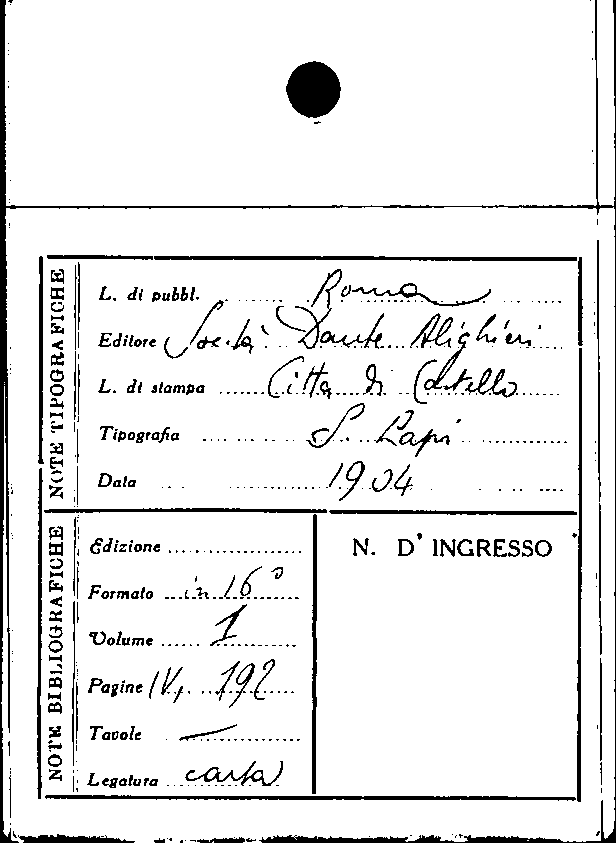 NOTE TIPOGRAFICHE
L. di pubbl. Roma
Editore Società Dante Alighieri
L. di stampa Citta di Castello
Tipografia S. Lapi
Data 1904
NOTE BIBLIOGRAFICHE
Edizione
Formato in 16°
Volume 1
Pagine IV, 192
Tavole —
Legatura carta
N. D'INGRESSO